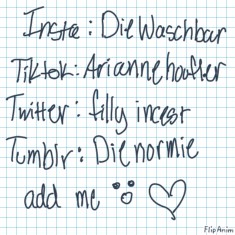 Insta: DieWaschbar
Tiktok: Ariannehoufler
Twitter: filly incest
Tumblr: Dienormie
add me
FlipAnim